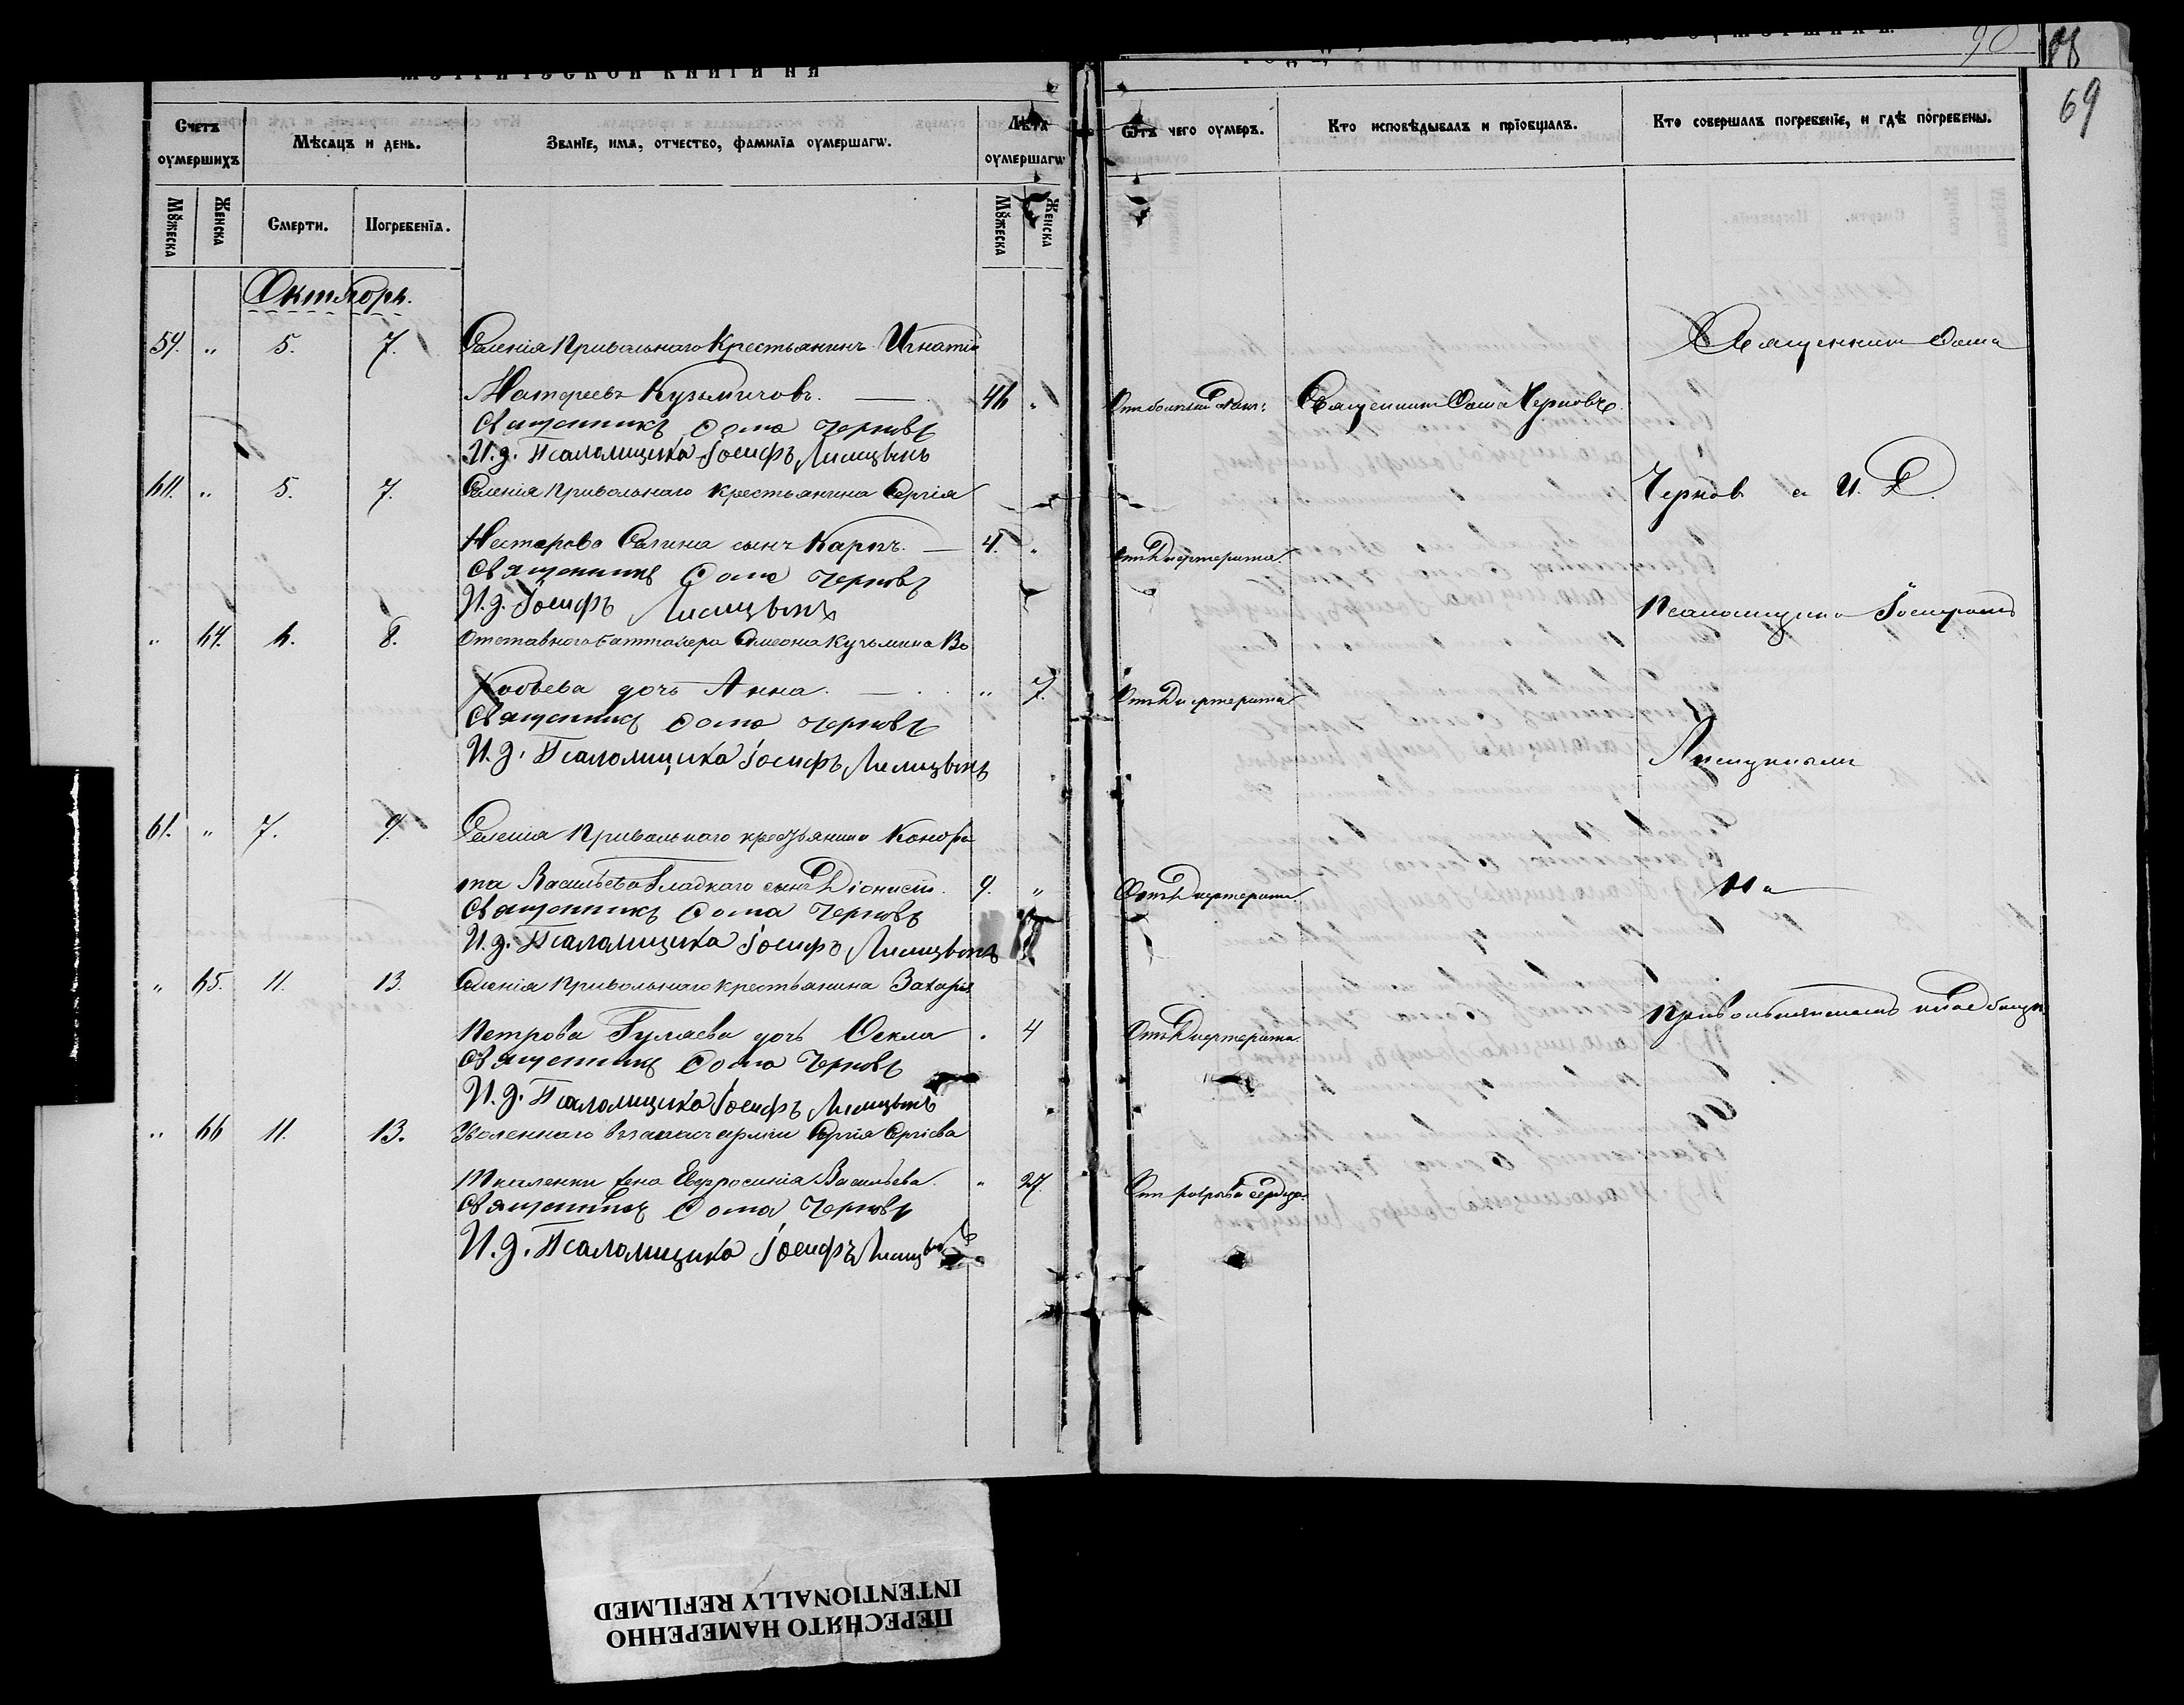 90
88
69
МЕТРИЧЕСКОЙ КНИГИ НА
Счетъ оумершихъ
Мѣсяцъ и день.
Званїе, имя, отчество, фамилїя оумершагѡ.
Лѣта оумершагѡ
Ѿ чего оумеръ.
Кто исповѣдывалъ и прїобщалъ.
Кто совершалъ погребенїе, и гдѣ погребены.
Мꙋжеска
Женска
Смерти.
Погребенїя.
Мꙋжеска
Женска
Октябрь.
59. " 5. 7. Селенія Привольнаго Крестьянинъ Игнатій
Священник Ѳома
Матѳеевъ Кузьмичовъ. — 46 "
Священник Ѳома Черновъ
Священникъ Ѳома Черновъ
И. д. Псаломщика Іосифъ Лисицынъ
60. " 5. 7. Селенія Привольнаго крестьянина Сергія
Чернов с И. Д.
Нестерова сынъ Карпъ. — 4. " Отъ Дифтерита
Священникъ Ѳома Черновъ
И. д. Іосифъ Лисицынъ
Псаломщика Іосифомъ
" 64. 6. 8. Отставного Симеона Кузьмина Во
робьева дочь Анна. — " 7. Отъ Дифтерита
Священникъ Ѳома Черновъ
И. д. Псаломщика Іосифъ Лисицынъ
Лисицыным
61. " 7. 9. Селенія Привольнаго крестьянина Кондра
та Васильева Гладкаго сынъ Діонисій. 9. " Отъ Дифтерита
На
Священникъ Ѳома Черновъ
И. д. Псаломщика Іосифъ Лисицынъ
" 65. 11. 13. Селенія Привольнаго крестьянина Захарія
Привольненскомъ кладбищѣ
Петрова Гулаева дочь Ѳекла " 4 Отъ Дифтерита
Священникъ Ѳома Черновъ
И. д. Псаломщика Іосифъ Лисицынъ
" 66 11. 13. Уволеннаго въ запасъ арміи Сергія Сергіева
жена Евфросинія Васильева. " 27. От сердца
Священникъ Ѳома Черновъ
И. д. Псаломщика Іосифъ Лисицынъ
ПЕРЕСНЯТО НАМЕРЕННО
INTENTIONALLY REFILMED